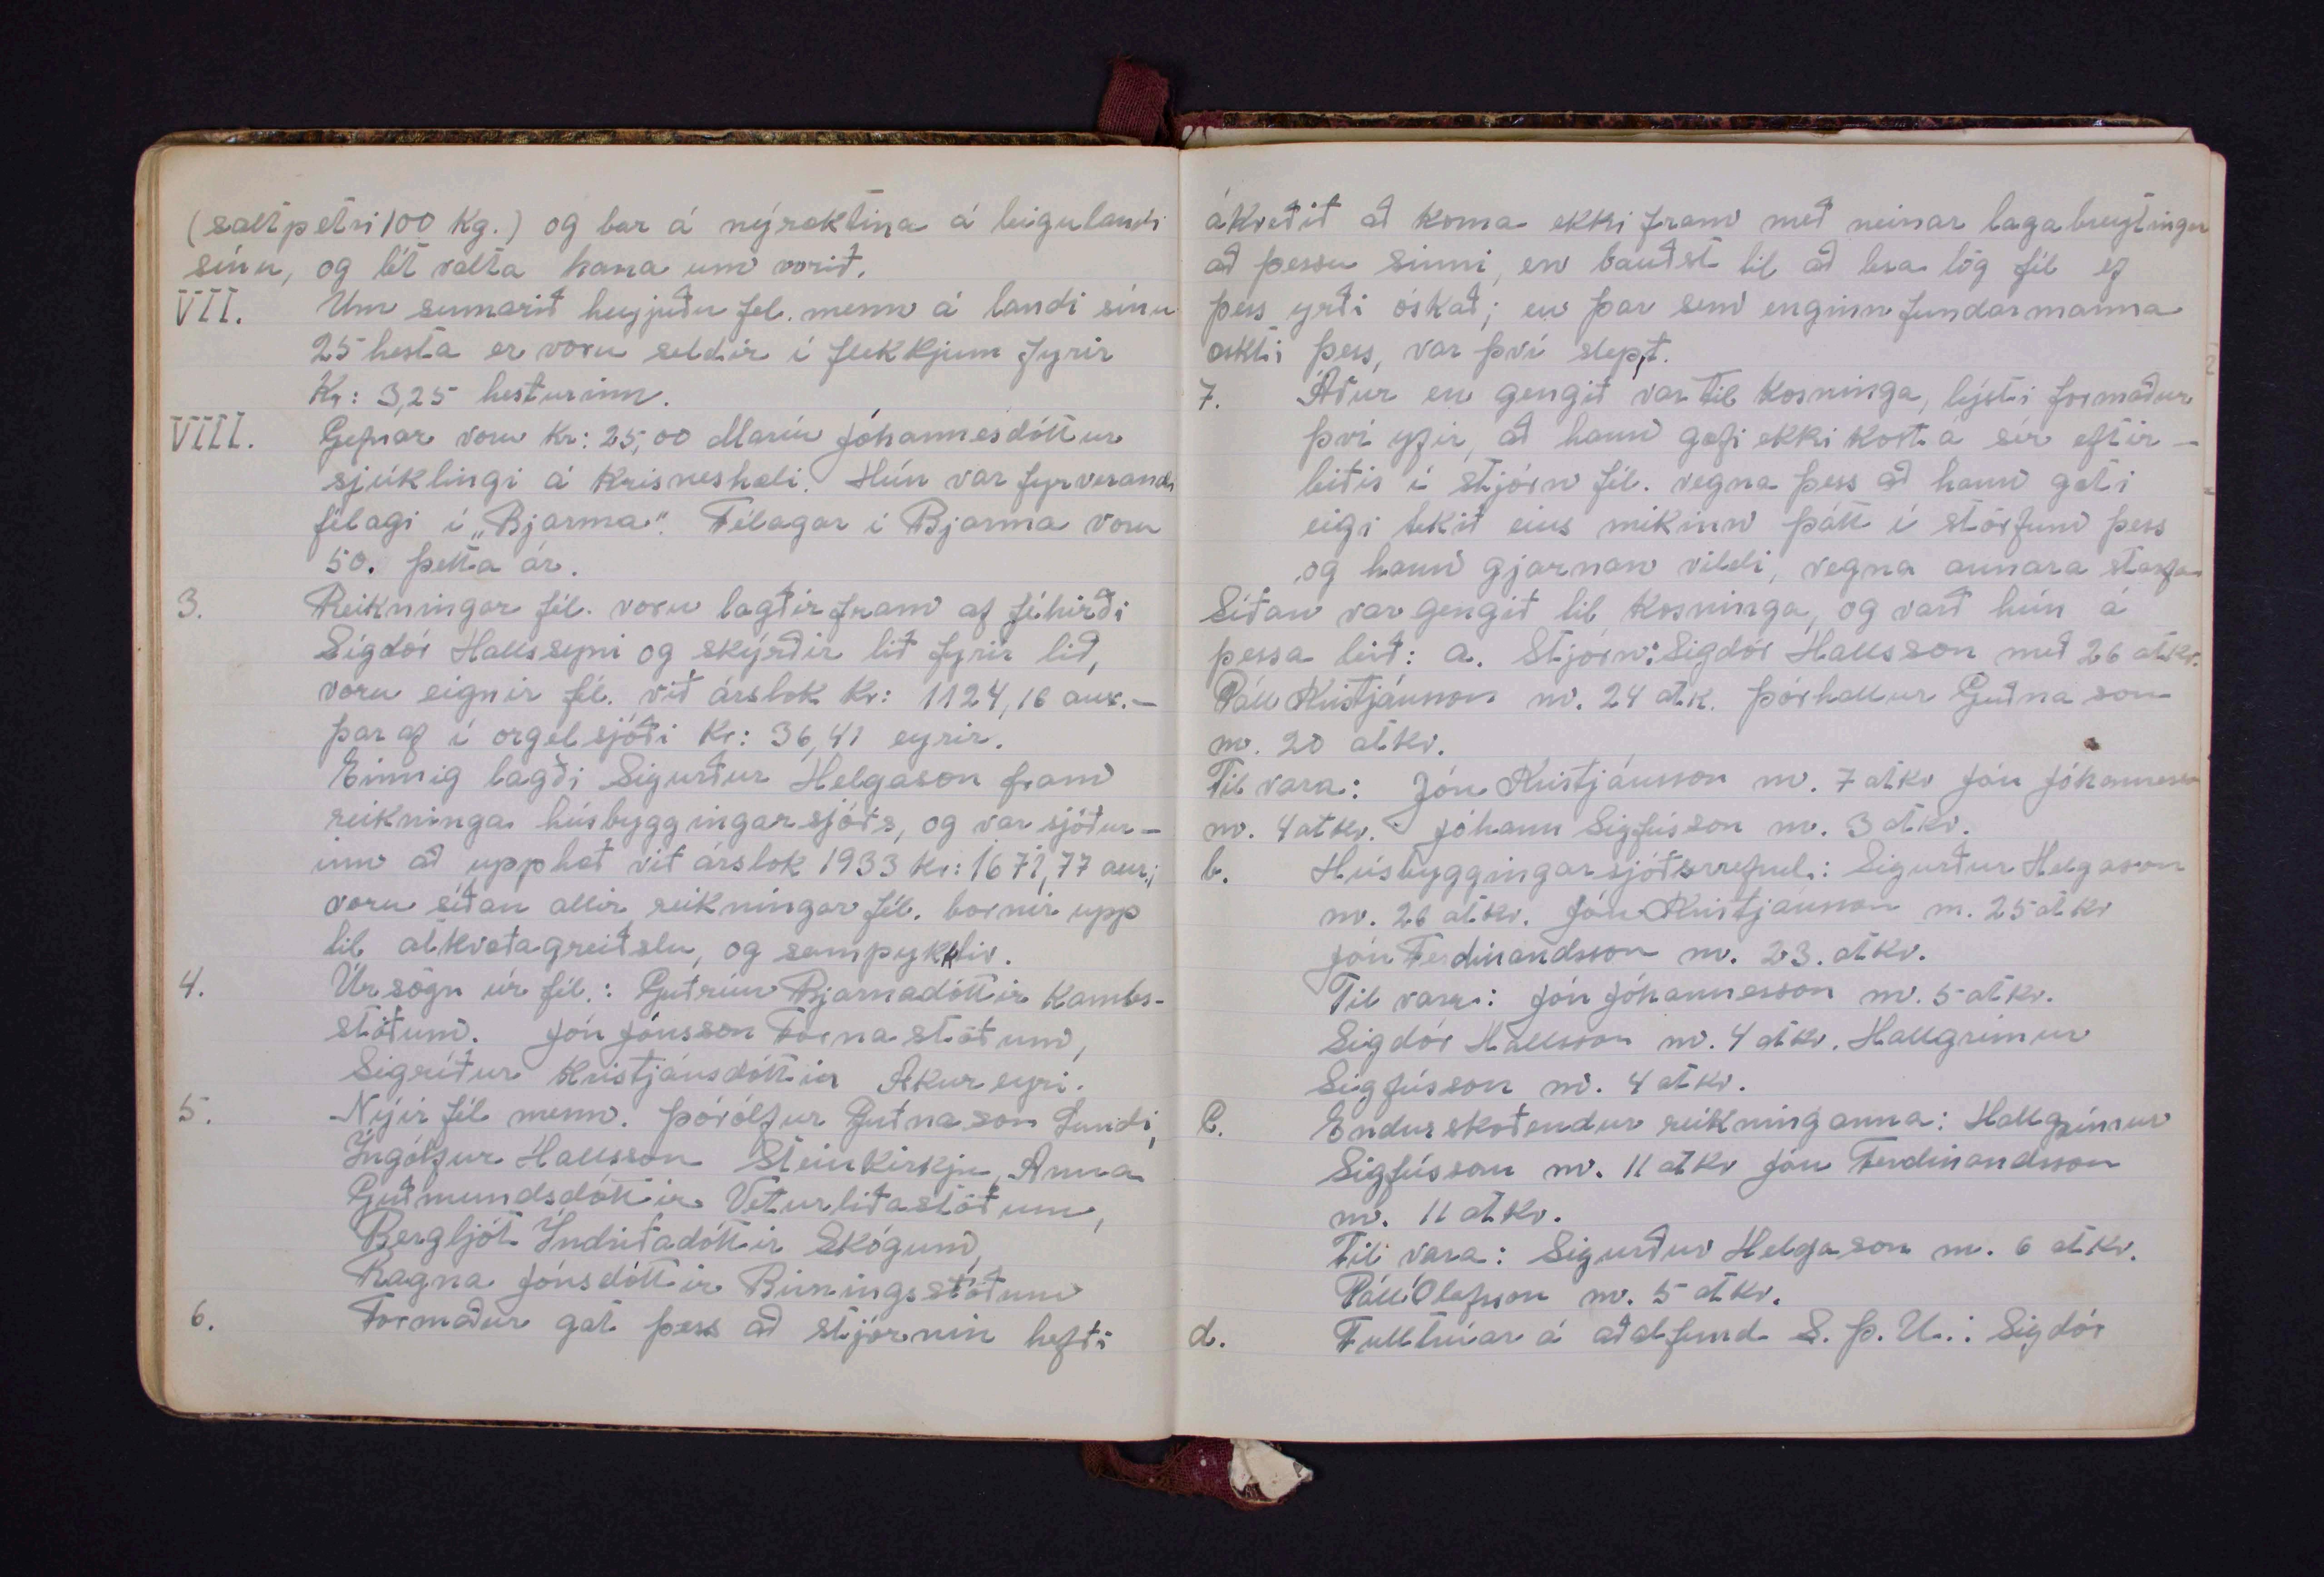 (saltpétri 100 Kg.) og bar á nýræktina á leigulandi
sínu, og lét valta hana um vorið.
VII. Um sumarið heyjuðu fél. menn á landi sínu
25 hesta er voru seldir í flekkjum fyrir
Kr: 3,25 hesturinn.
VIII. Gefnar voru kr: 25,00 Maríu Jóhannesdóttur
sjúklingi á Kristneshæli. Hún var fyrverandi
félagi í „Bjarma". Félagar í Bjarma voru
50. þetta ár.
3. Reikningar fél. voru lagðir fram af féhirði
Sigdór Hallssyni og skýrðir lið fyrir lið,
voru eignir fél. við árslok kr: 1124,16 aur.-
þar af í orgelsjóði kr: 36,41 eyrir.
Einnig lagði Sigurður Helgason fram
reikninga húsbyggingarsjóðs, og var sjóður-
inn að upphæð við árslok 1933 kr: 1671,77 aur;
voru síðan allir reikningar fél. bornir upp
til atkvæðagreiðslu, og samþykktir.
4. Úrsögn úr fél.: Guðrún Bjarnadóttir Kambs-
stöðum. Jón Jónsson Fornastöðum,
Sigríður Kristjánsdóttir Akureyri.
5. Nýir fél menn. Þórólfur Guðnason Lundi,
Ingólfur Hallsson Steinkirkju, Anna
Guðmundsdóttir Veturliðastöðum,
Bergljót Indriðadóttir Skógum,
Ragna Jónsdóttir Birningsstöðum
6. Formaður gat þess að stjórnin hefði
ákveðið að koma ekki fram með neinar lagabreytingar
að þessu sinni, en bauðst til að lesa lög fél ef
þess yrði óskað; en þar sem enginn fundarmanna
óskti þess, var því slept.
7. Áður en gengið var til kosninga, lýsti formaður
því yfir, að hann gæfi ekki kost á sér eftir-
leiðis í stjórn fél. vegna þess að hann gæti
eigi tekið eins mikinn þátt í störfum þess
og hann gjarnan vildi, vegna annara starfa
Síðan var gengið til kosninga, og varð hún á
þessa leið: a. Stjórn: Sigdór Hallsson með 26 atkv.
Páll Kristjánsson m. 24 atk. Þórhallur Guðnason
m. 20 atkv.
Til vara: Jón Kristjánsson m. 7 atkv Jón Jóhannesson
m. 4 atkv. Jóhann Sigfússon m. 3 atkv.
b. Húsbyggingarsjóðsrrefnd.: Sigurður Helgason
m. 26 atkv. Jón Kristjánsson m. 25 atkv
Jón Ferdinandsson m. 23. atkv.
Til vara: Jón Jóhannesson m. 5 atkv.
Sigdór Hallsson m. 4 atkv. Hallgrímur
Sigfússon m. 4 atkv.
C. Endurskoðendur reikninganna: Hallgrímur
Sigfússon m. 11 atkv Jón Ferdinandsson
m. 11 atkv.
Til vara: Sigurður Helgason m. 6 atkv.
Páll Ólafsson m. 5 atkv.
d. Fulltrúar á aðalfund S. Þ. U.: Sigdór